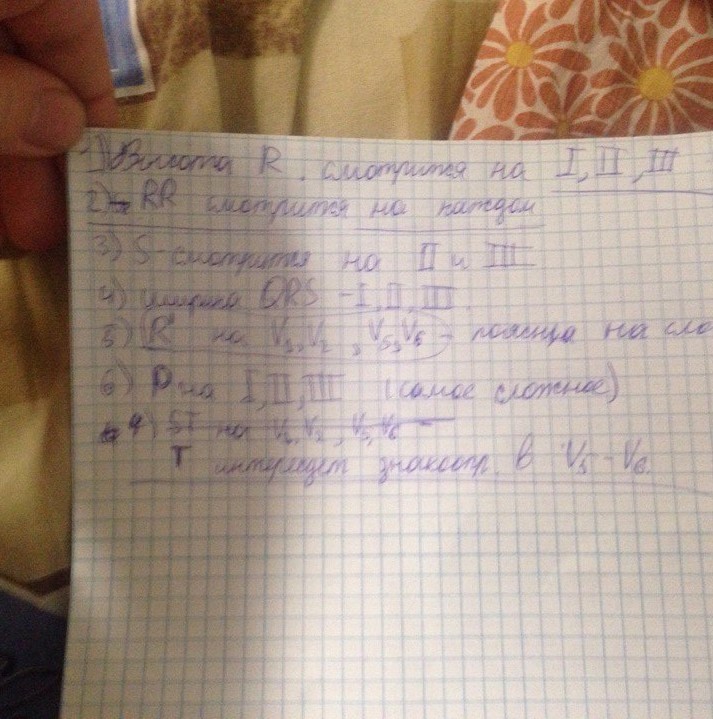 1) Высота R. смотрится на I, II, III
2) RR смотрится на каждом
3) S-смотрится на II и III
4) ширина QRS - I, II, III.
5) R на V1, V2, V5, V5 - на
6) P на I, II, III (самое сложное)
7) ST на V1, V2, V5, V6 -
T интересует в V5 - V6.